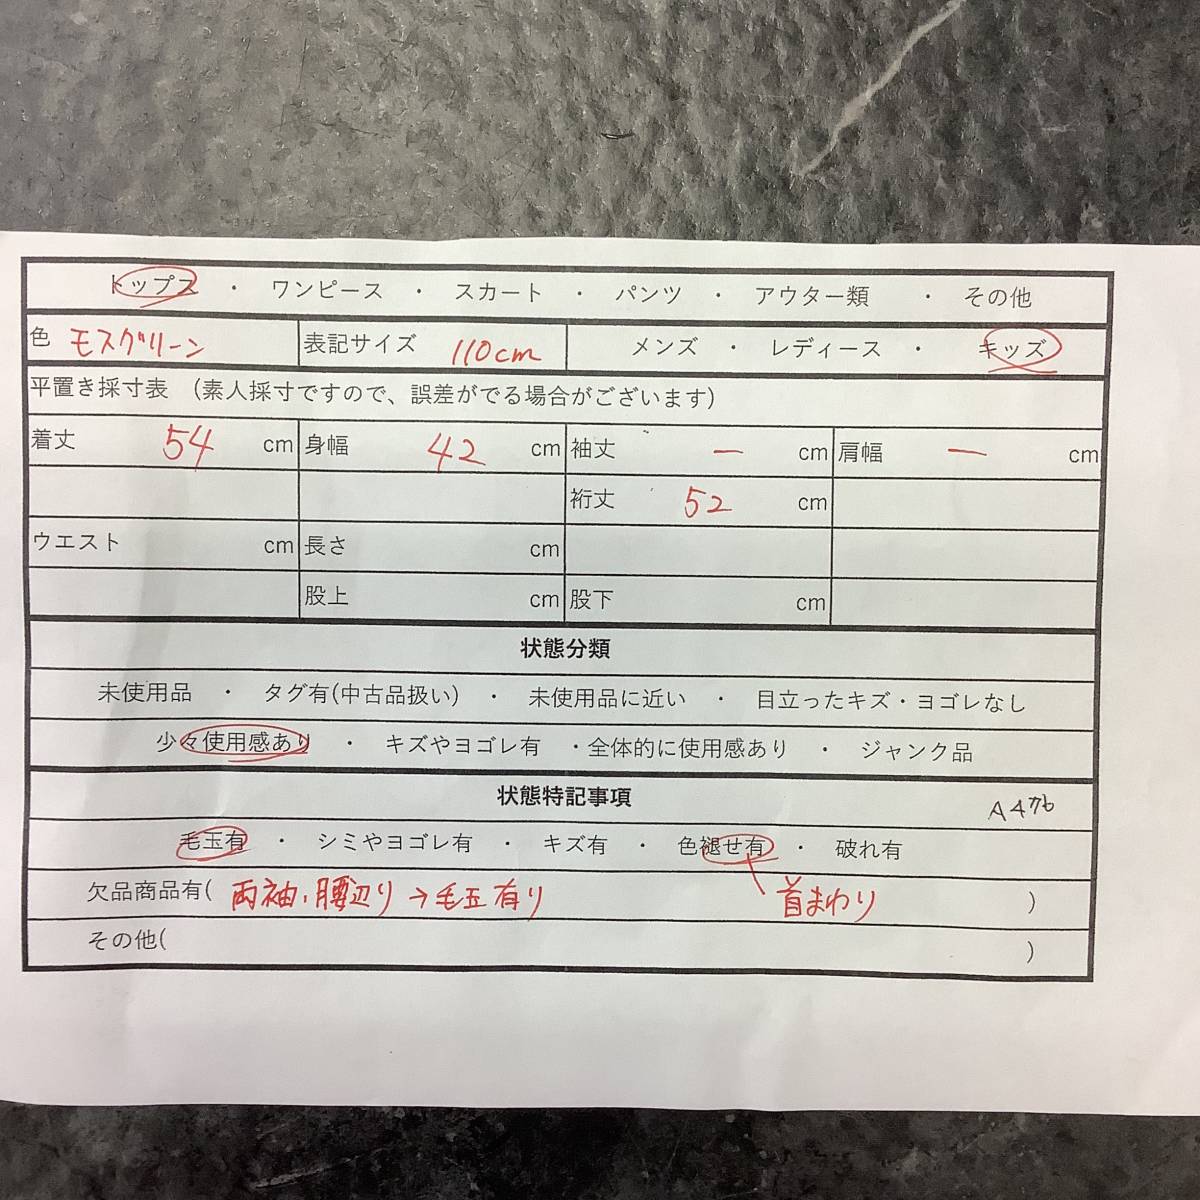 トップス ・ ワンピース ・ スカート ・ パンツ ・ アウター類 ・ その他
色 モスグリーン 表記サイズ 110cm メンズ ・ レディース ・ キッズ
平置き採寸表 (素人採寸ですので、誤差がでる場合がございます)
着丈 54 cm 身幅 42 cm 袖丈 ー cm 肩幅 ー cm
裄丈 52 cm
ウエスト cm 長さ cm
股上 cm 股下 cm
状態分類
未使用品 ・ タグ有(中古品扱い) ・ 未使用品に近い ・ 目立ったキズ・ヨゴレなし
少々使用感あり ・ キズやヨゴレ有 ・全体的に使用感あり ・ ジャンク品
状態特記事項 A476
毛玉有 ・ シミやヨゴレ有 ・ キズ有 ・ 色褪せ有 ・ 破れ有
欠品商品有( 両袖、腰辺り→毛玉有り 首まわり )
その他( )